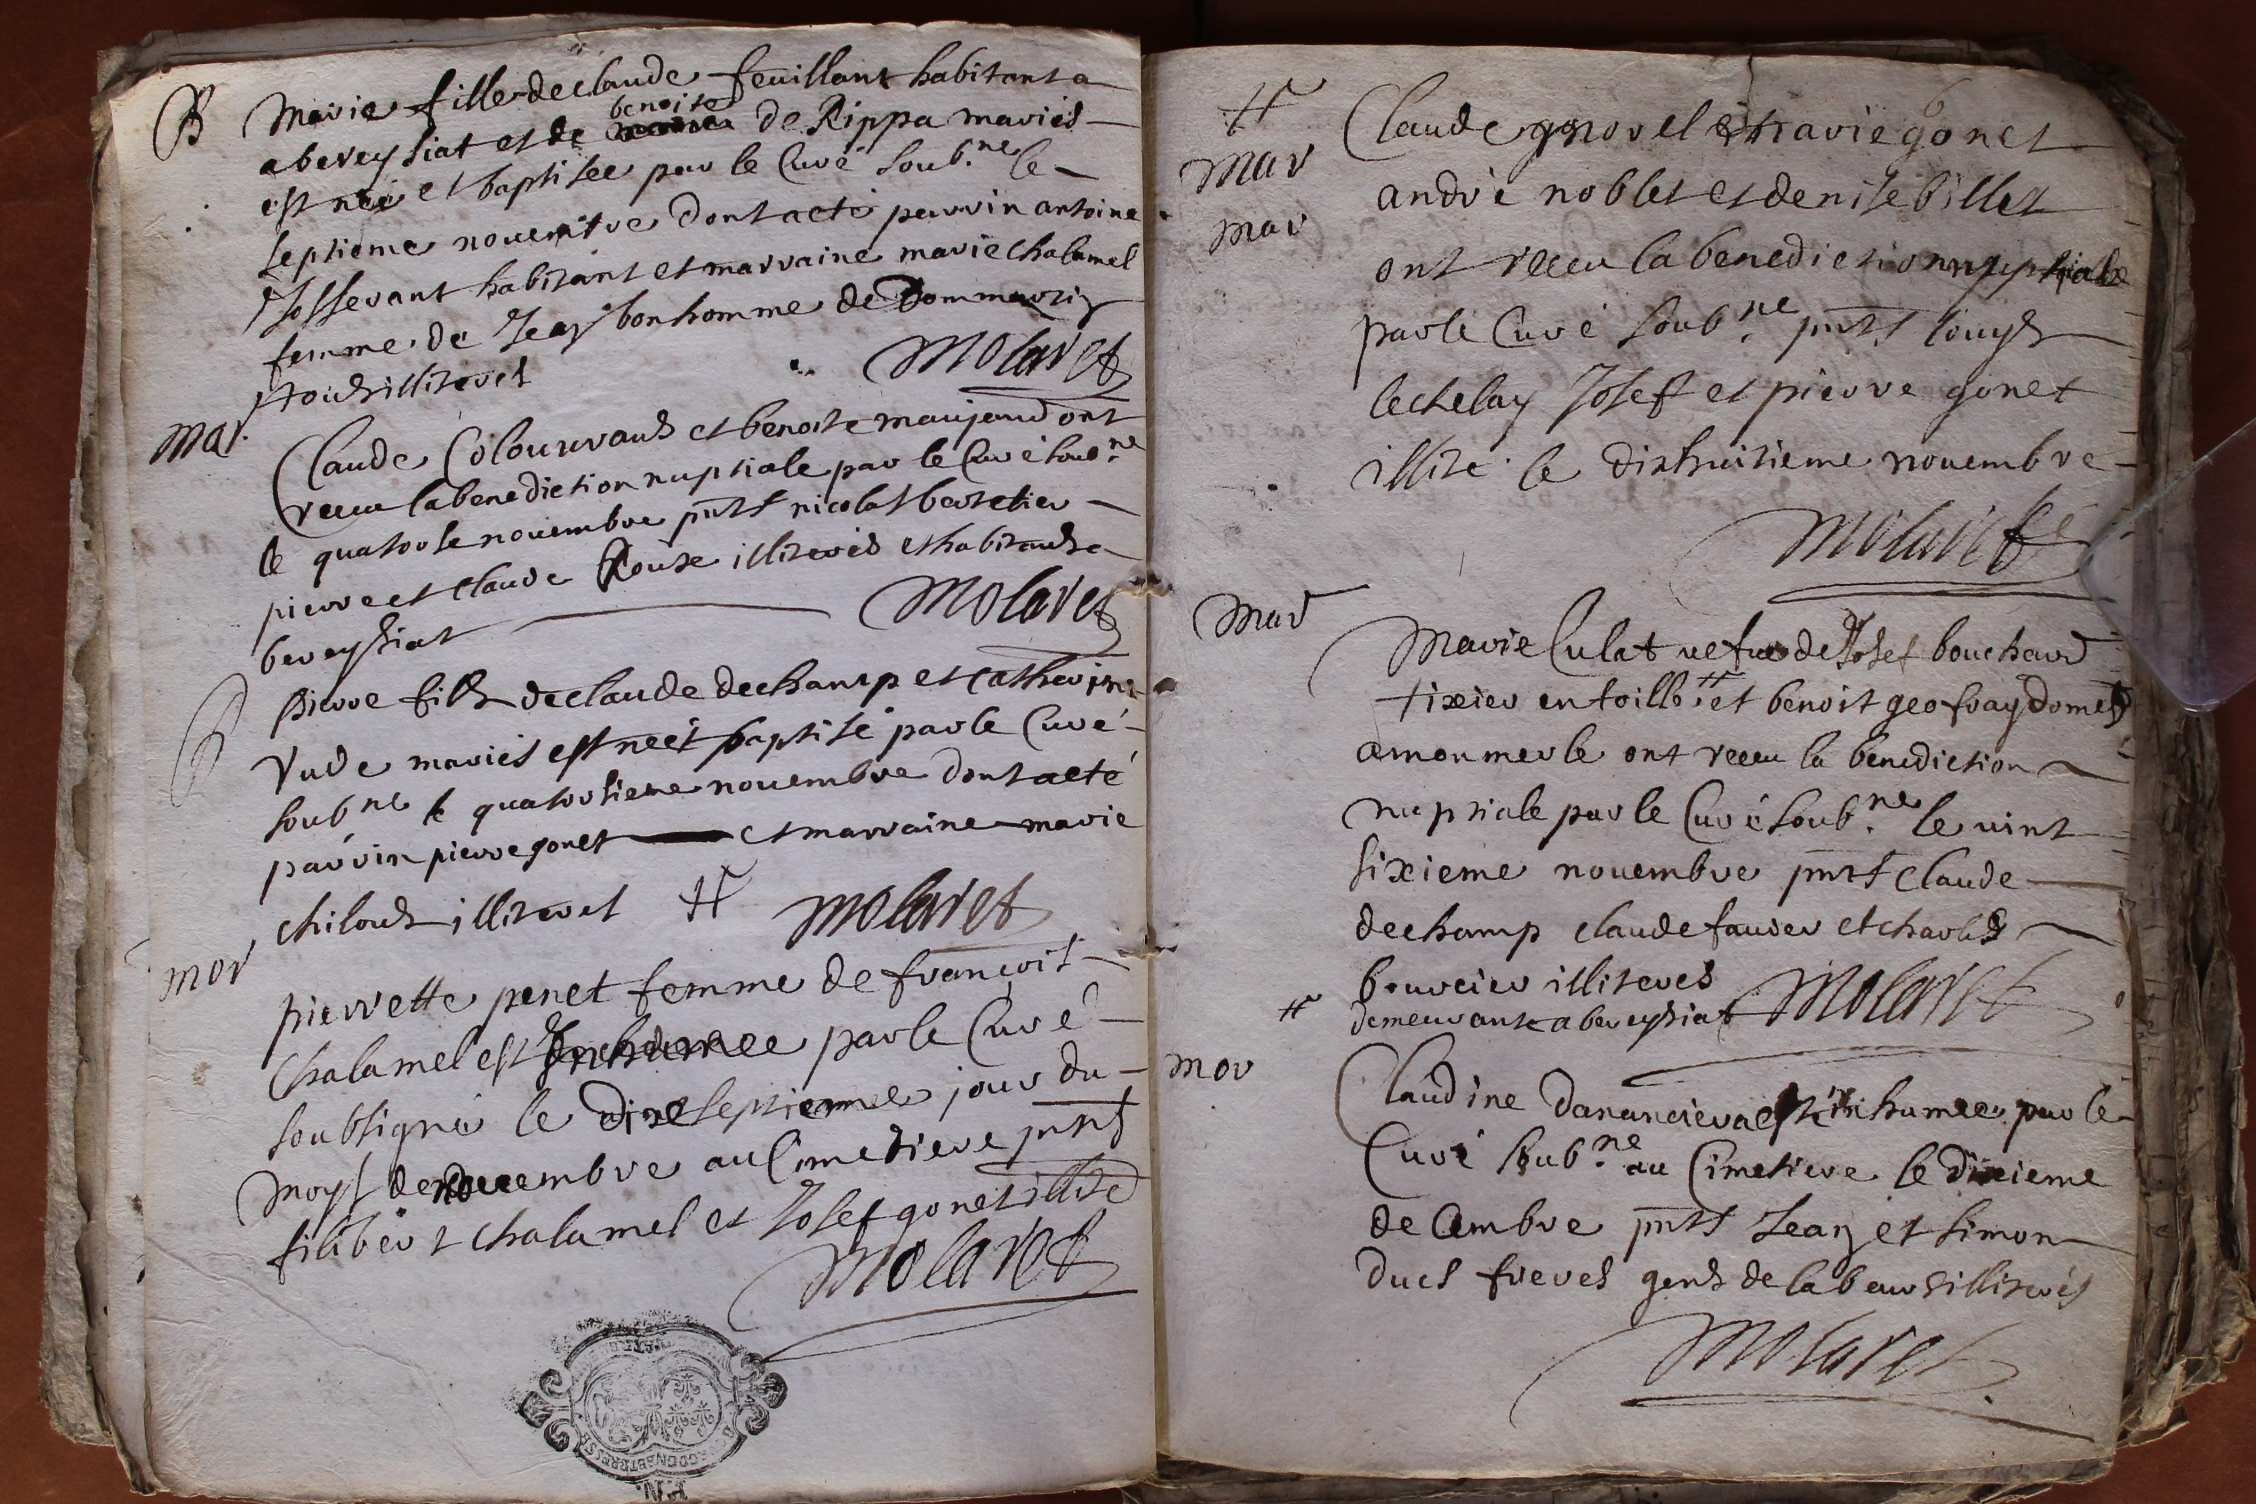 B
Marie fille de claude feuillant habitant a
bereysiat et de benoite de Rippa mariés
est née et baptisée par le Curé soub.ne le
septieme novembre dont acte parrin antoine
Josserant habitant et marraine marie chalamel
femme de Jean bonhomme de Dommartin
tous illiterés Molaret
mar.
Claude Colourraud et benoite maujand ont
receu la benediction nuptiale par le Curé soub.ne
le quatorse novembre pnts nicolas bertelier
pierre et claude illiterés et habitants a
bereysiat Molaret
B
pierre fils de claude dechamp et catherine
Vude mariés est né et baptisé par le Curé
soubne le quatorsieme novembre dont acte
parrin pierre gonet et marraine marie
chiloud illiterés # Molaret
mor
pierrette penet femme de françois
chalamel est Inhumee par le Curé
soubsigné le dixseptieme jour du
moys de novembre au Cimetiere pnts
filibert chalamel et Josef gonet illite
Molaret
#
mar
mar
Claude morel et marie gonet
andré noblet et denise billet
ont receu la benediction nuptiale
par le Curé soubne pnts louys
lechelay Josef et pierre gonet
illite. le dixhuitieme novembre
Molaret
mar
Marie Culat vefue de Josef bouchard
tixier en toille # et benoit geofray domest
a monmerle ont receu la benediction
nuptiale par le Curé soub.ne le vint
sixieme novembre pnts claude
dechamp claude favier et charles
bourcier illiterés
# demeurante a bereysiat Molaret
mor
Claudine est inhumee par le
Curé soub.ne au Cimetiere le dixieme
decembre pnts Jean et simon
ducs freres gens de labeur illiterés
Molaret